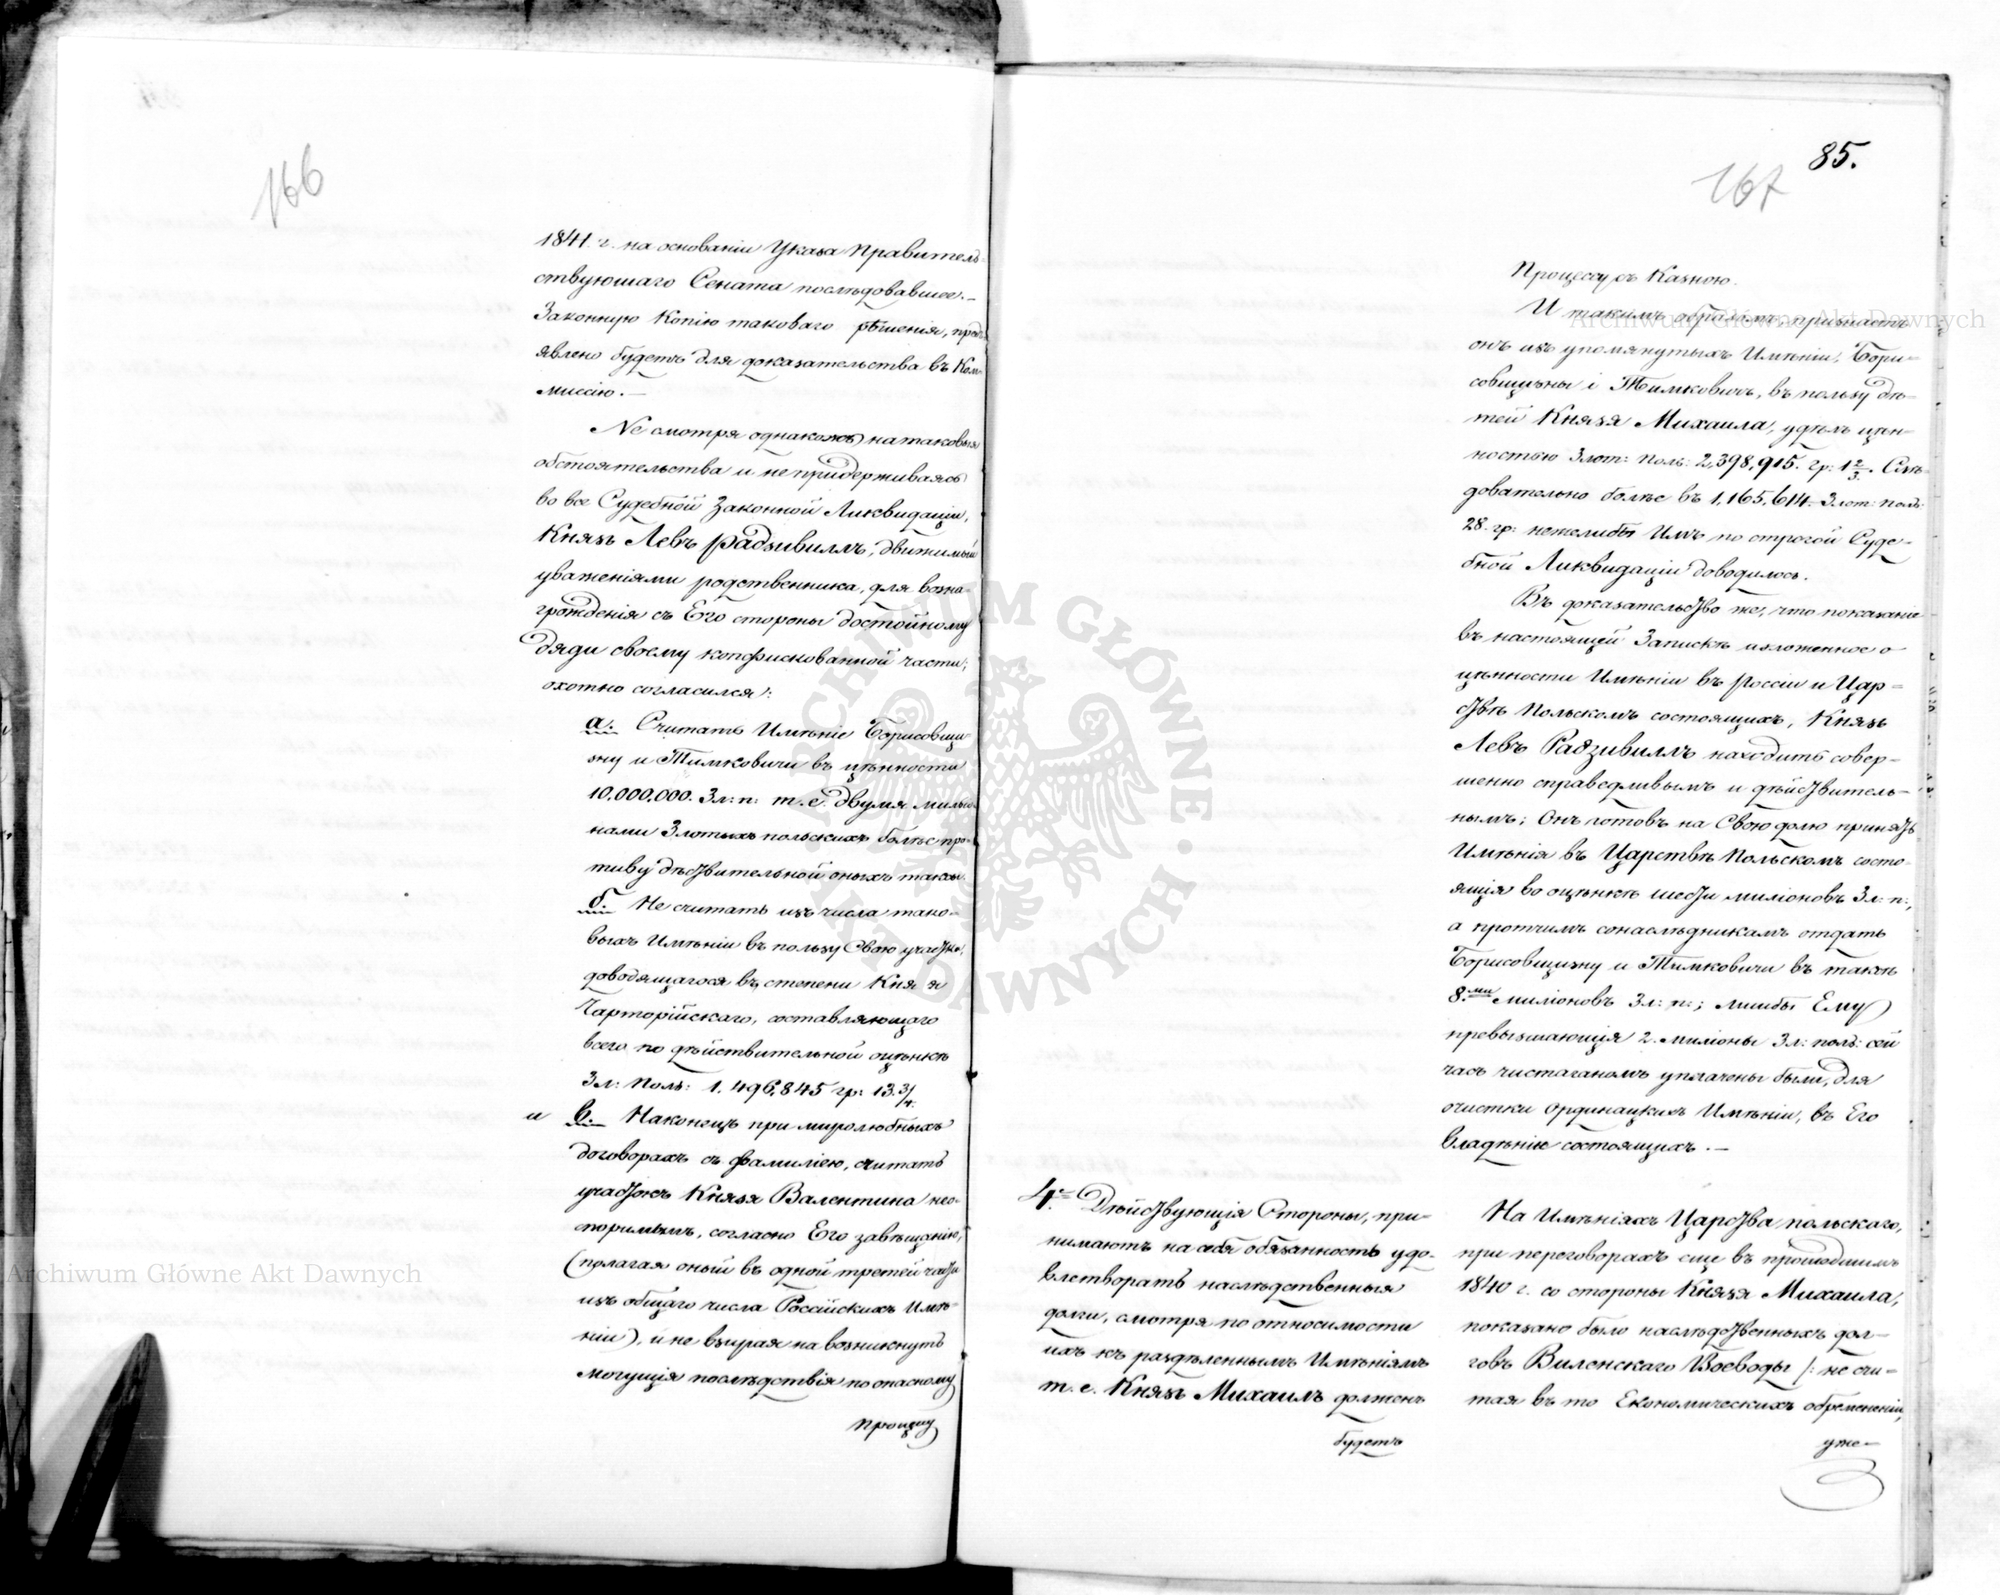 166
1841. г. на основаніи Указа Правитель-
ствующаго Сената послѣдовавшее.—
Законную Копію таковаго рѣшенія, пред-
явлено будетъ для доказательства въ Ком-
миссію.—
Не смотря однакожъ на таковыя
обстоятельства и не придерживаясь
во все Судебной Законной Ликвидаціи,
Князь Левъ Радзивиллъ, движимый
уваженіями родственника, для возна-
гражденія съ Его стороны достойному
дяди своему конфискованной части;
охотно согласился:
а. Считать Имѣніе Борисовщи-
зну и Тимковичи въ цѣнности
10,000,000. Зл: п: т. е. двумя милліо-
нами Злотыхъ польскихъ болѣе про-
тиву дѣйствительной оныхъ таксы.
б. Не считать изъ числа тако-
выхъ Имѣніи въ пользу Свою участка,
доводящагося въ степени Князя
Чарторійскаго, составляющаго
всего по дѣйствительной оцѣнкѣ
Зл: Поль: 1.496,845 гр: 13 3/4.
и в. Наконецъ при миролюбныхъ
договорахъ съ фамиліею, считать
участокъ Князя Валентина нео-
поримымъ, согласно Его завѣщанію,
(полагая оный въ одной третей части
изъ общаго числа Россійскихъ Имѣ-
ніи), и не взирая на возникнуть
могущія послѣдствія по опасному
процессу
85.
167
Процессу съ Казною.
И такимъ образомъ, признаетъ
онъ изъ упомянутыхъ Имѣніи, Бори-
совщизны і Тимковичъ, въ пользу дѣ-
тей Князя Михаила, удѣлъ цѣн-
ностью Злот: Поль: 2,398,915. гр: 1 2/3. Слѣ-
довательно болѣе въ 1,165,614. Злот: Поль:
28. гр: нежелибы Имъ по строгой Суде-
бной Ликвидаціи доводилось.
Въ доказательство же, что показаніе
въ настоящей Запискѣ изложенное о
цѣнности Имѣніи въ Россіи и Цар-
ствѣ Польскомъ состоящихъ, Князь
Левъ Радзивиллъ находитъ совер-
шенно справедливымъ и дѣйствитель-
нымъ; Онъ готовъ на Свою долю принять
Имѣнія въ Царствѣ Польскомъ состо-
ящія во оцѣнкѣ шести миліоновъ Зл: п:,
а протчимъ сонаслѣдникамъ отдать
Борисовщизну и Тимковичи въ таксѣ
8.ми миліоновъ Зл: п:; лишбы Ему
превышающія 2. миліоны Зл: поль: сей
часъ чистаганомъ уплачены были, для
очистки Ординацкихъ Имѣніи, въ Его
владѣніи состоящихъ.—
4.е Дѣйствующія Стороны, при-
нимаютъ на себя обязанность удо-
влетворать наслѣдственныя
долги, смотря по относимости
ихъ къ раздѣленнымъ Имѣніямъ
т. е. Князь Михаилъ долженъ
будетъ
На Имѣніяхъ Царства польскаго,
при переговорахъ еще въ прошедшимъ
1840 г. со стороны Князя Михаила,
показано было наслѣдственныхъ дол-
говъ Виленскаго Воеводы /: не счи-
тая въ то Економическихъ обремененій,
уже—
Archiwum Główne Akt Dawnych
Archiwum Główne Akt Dawnych
ARCHIWUM GŁÓWNE AKT DAWNYCH